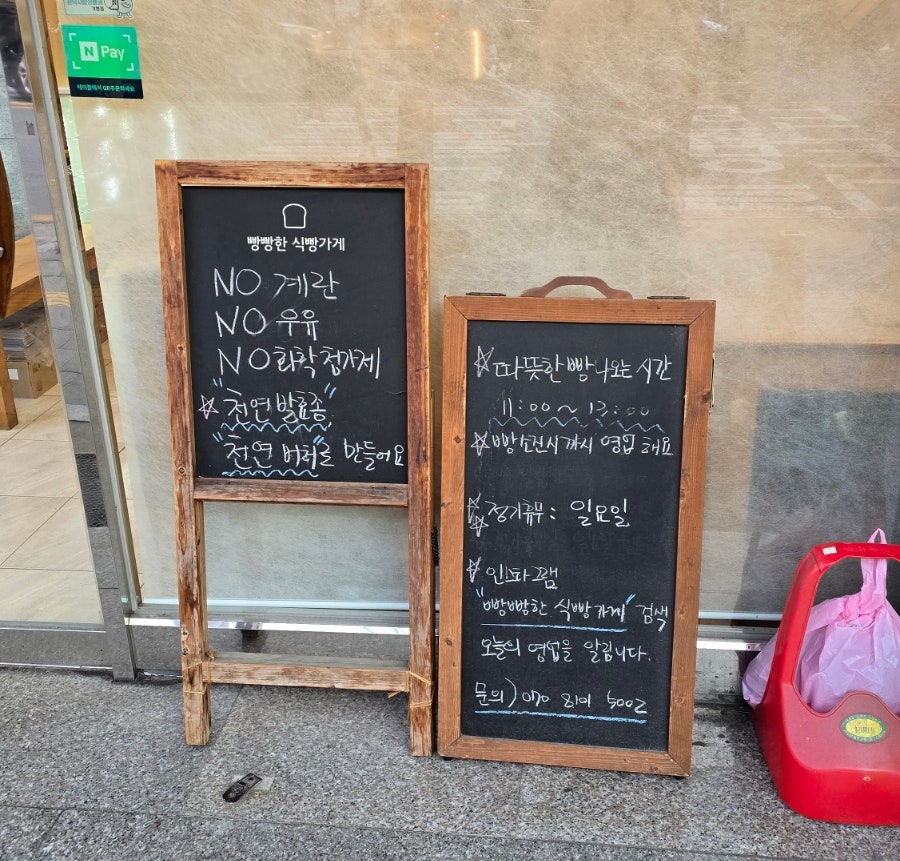 N Pay
테이블에서 QR주문하세요
빵빵한 식빵가게
NO 계란
NO 우유
NO 화학첨가제
☆ "천연발효종"
"천연버터"로 만들어요
☆ 따뜻한 빵 나오는 시간
11:00 ~ 13:00
☆ 빵 소진시까지 영업해요
☆ 정기휴무 : 일요일
☆ 인스타그램
"빵빵한 식빵가게" 검색
오늘의 영업을 알립니다.
문의) 070 8101 5002